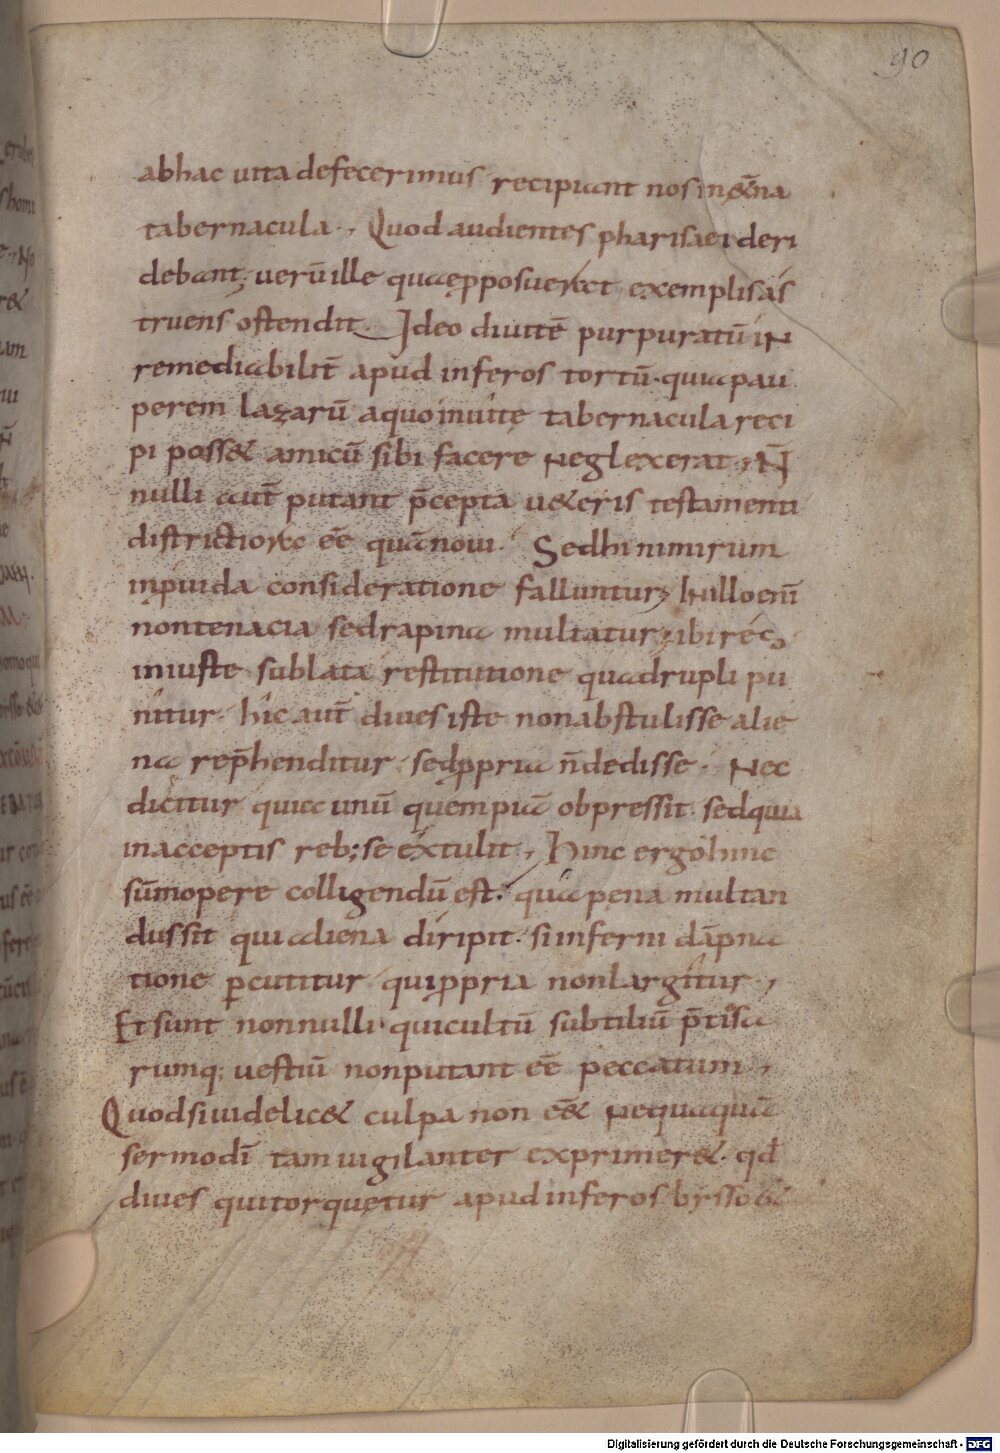 90
abhac uita defecerimus recipiant nos in &̄na
tabernacula., Quod audientes pharisaei deri
debant; uerū ille quae pposuerat exemplis as
truens ostendit. Ideo diuitē purpuratū in
remediabilit̄ apud inferos tortū. quia pau
perem lazarū a quo inuitę tabernacula reci
pi poss& amicū sibi facere neglexerat., N̄
nulli aut̄ putant p̄cepta u&eris testamenti
districtiora eē quā noui. Sed hi nimirum
inpuida consideratione falluntur; In illo enī
non tenacia sed rapina multatur; ibi rēs
iniuste sublata restitutione quadrupli pu
nitur. hic aut̄ diues iste non abstulisse alie
na rep̄henditur. sed ppria n̄ dedisse. Nec
dicitur quia unū quempiā obpressit. sed quia
in acceptis reb; se extulit., Hinc ergo hinc
sūmopere colligendū est. qua pena multan
dus sit qui aliena diripit. si inferni dāpna
tione p̄cutitur qui ppria non largitur.,
Et sunt nonnulli. qui cultū subtiliū p̄tiosa
rumq; uestiū non putant eē peccatum.,
Quod si uidelic& culpa non e& nequaquā
sermo dī tam uigilanter exprimer&. qđ
diues qui torquetur apud inferos bysso &
Digitalisierung gefördert durch die Deutsche Forschungsgemeinschaft - DFG